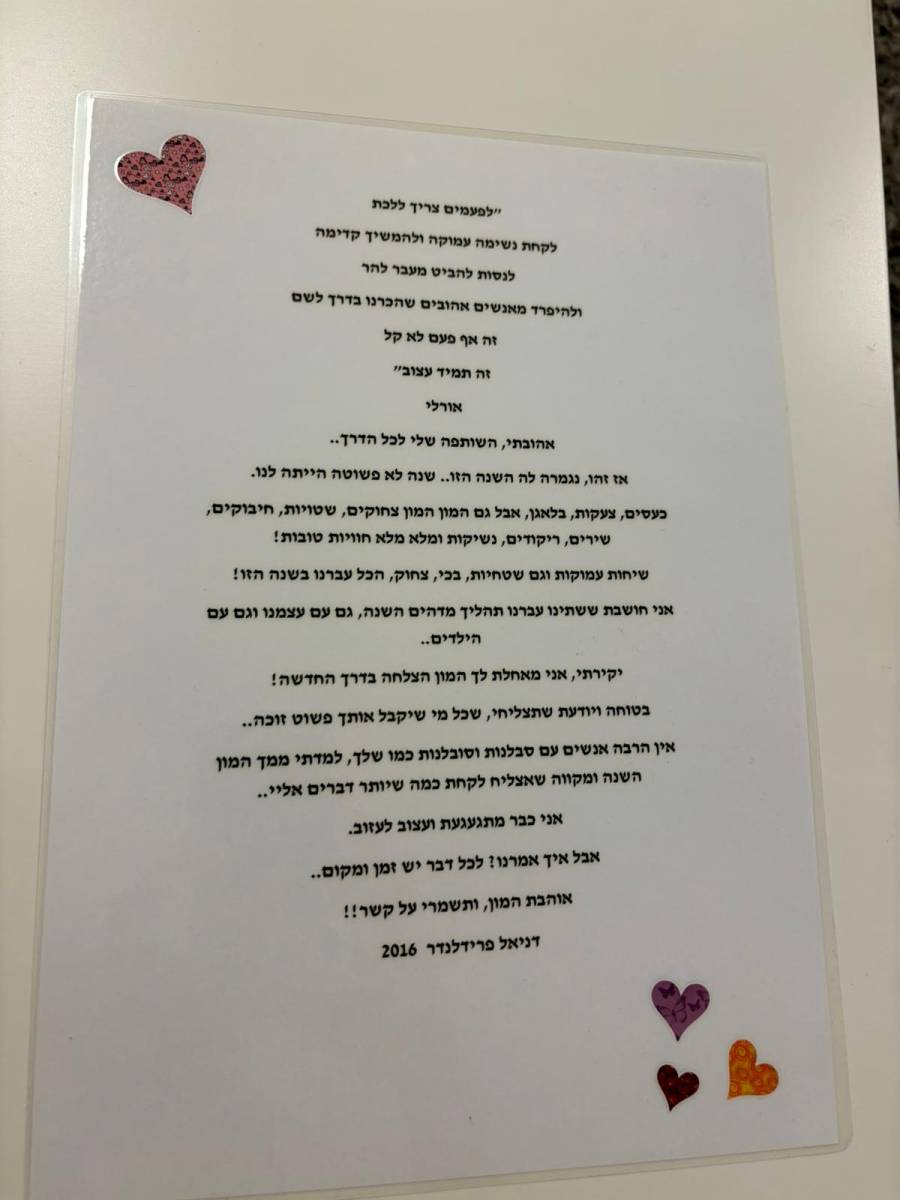 "לפעמים צריך ללכת
לקחת נשימה עמוקה ולהמשיך קדימה
לנסות להביט מעבר להר
ולהיפרד מאנשים אהובים שהכרנו בדרך לשם
זה אף פעם לא קל
זה תמיד עצוב"
אורלי
אהובתי, השותפה שלי לכל הדרך..
אז זהו, נגמרה לה השנה הזו.. שנה לא פשוטה הייתה לנו.
כעסים, צעקות, בלאגן, אבל גם המון המון צחוקים, שטויות, חיבוקים,
שירים, ריקודים, נשיקות ומלא מלא חוויות טובות!
שיחות עמוקות וגם שטחיות, בכי, צחוק, הכל עברנו בשנה הזו!
אני חושבת ששתינו עברנו תהליך מדהים השנה, גם עם עצמנו וגם עם
הילדים..
יקירתי, אני מאחלת לך המון הצלחה בדרך החדשה!
בטוחה ויודעת שתצליחי, שכל מי שיקבל אותך פשוט זוכה..
אין הרבה אנשים עם סבלנות וסובלנות כמו שלך, למדתי ממך המון
השנה ומקווה שאצליח לקחת כמה שיותר דברים אליי..
אני כבר מתגעגעת ועצוב לעזוב.
אבל איך אמרנו? לכל דבר יש זמן ומקום..
אוהבת המון, ותשמרי על קשר!!
דניאל פרידלנדר 2016